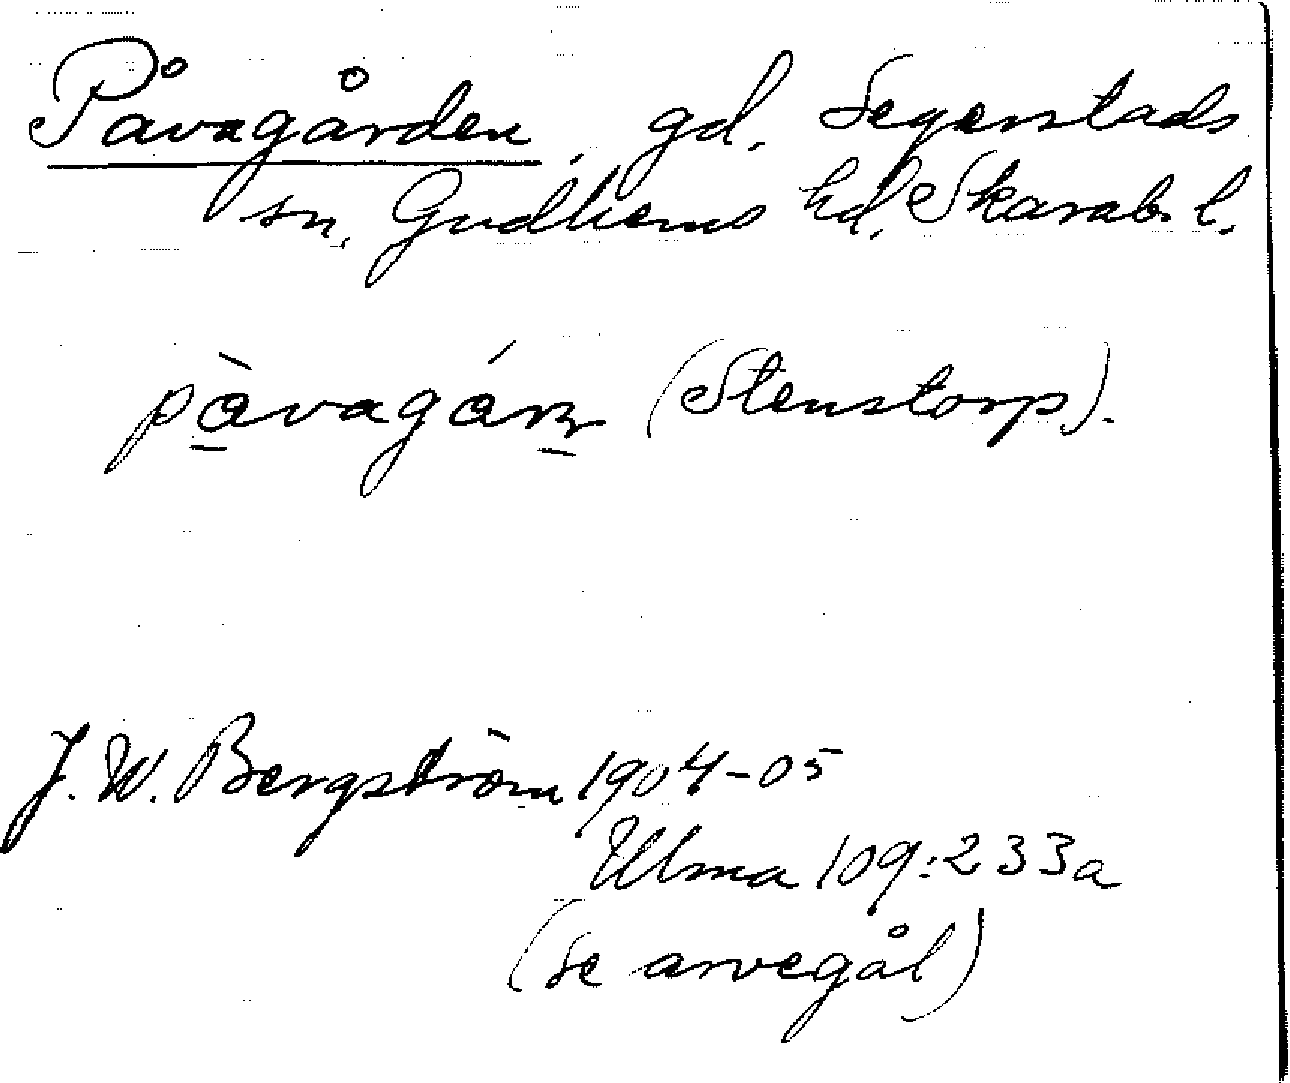 Påvagården, gd. Segerstads
sn. Gudhems hd. Skarab. l.
pàvagár̲n̲ (Stenstorp).
J. W. Bergström 1904-05
Ulma 109:233a
(se arvegål)